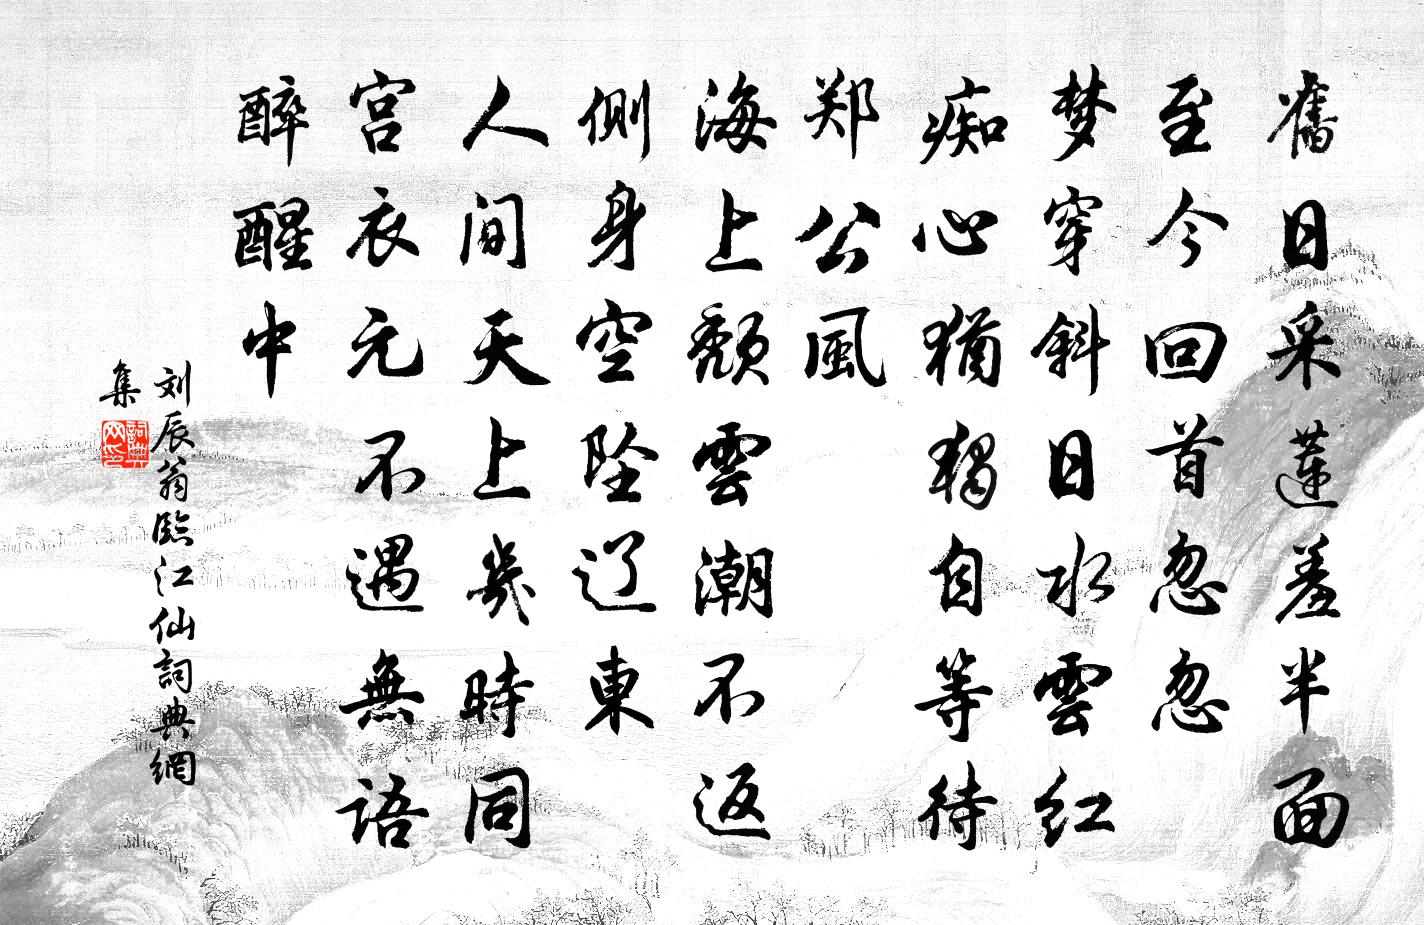 舊日采蓮羞半面
至今回首忽忽
梦穿斜日水雲红
痴心猶獨自等待
郑公風
海上颓雲潮不返
側身空坠辽東
人间天上幾時同
宫衣元不遇無語
醉醒中
刘辰翁臨江仙詞典網
集
詞典網